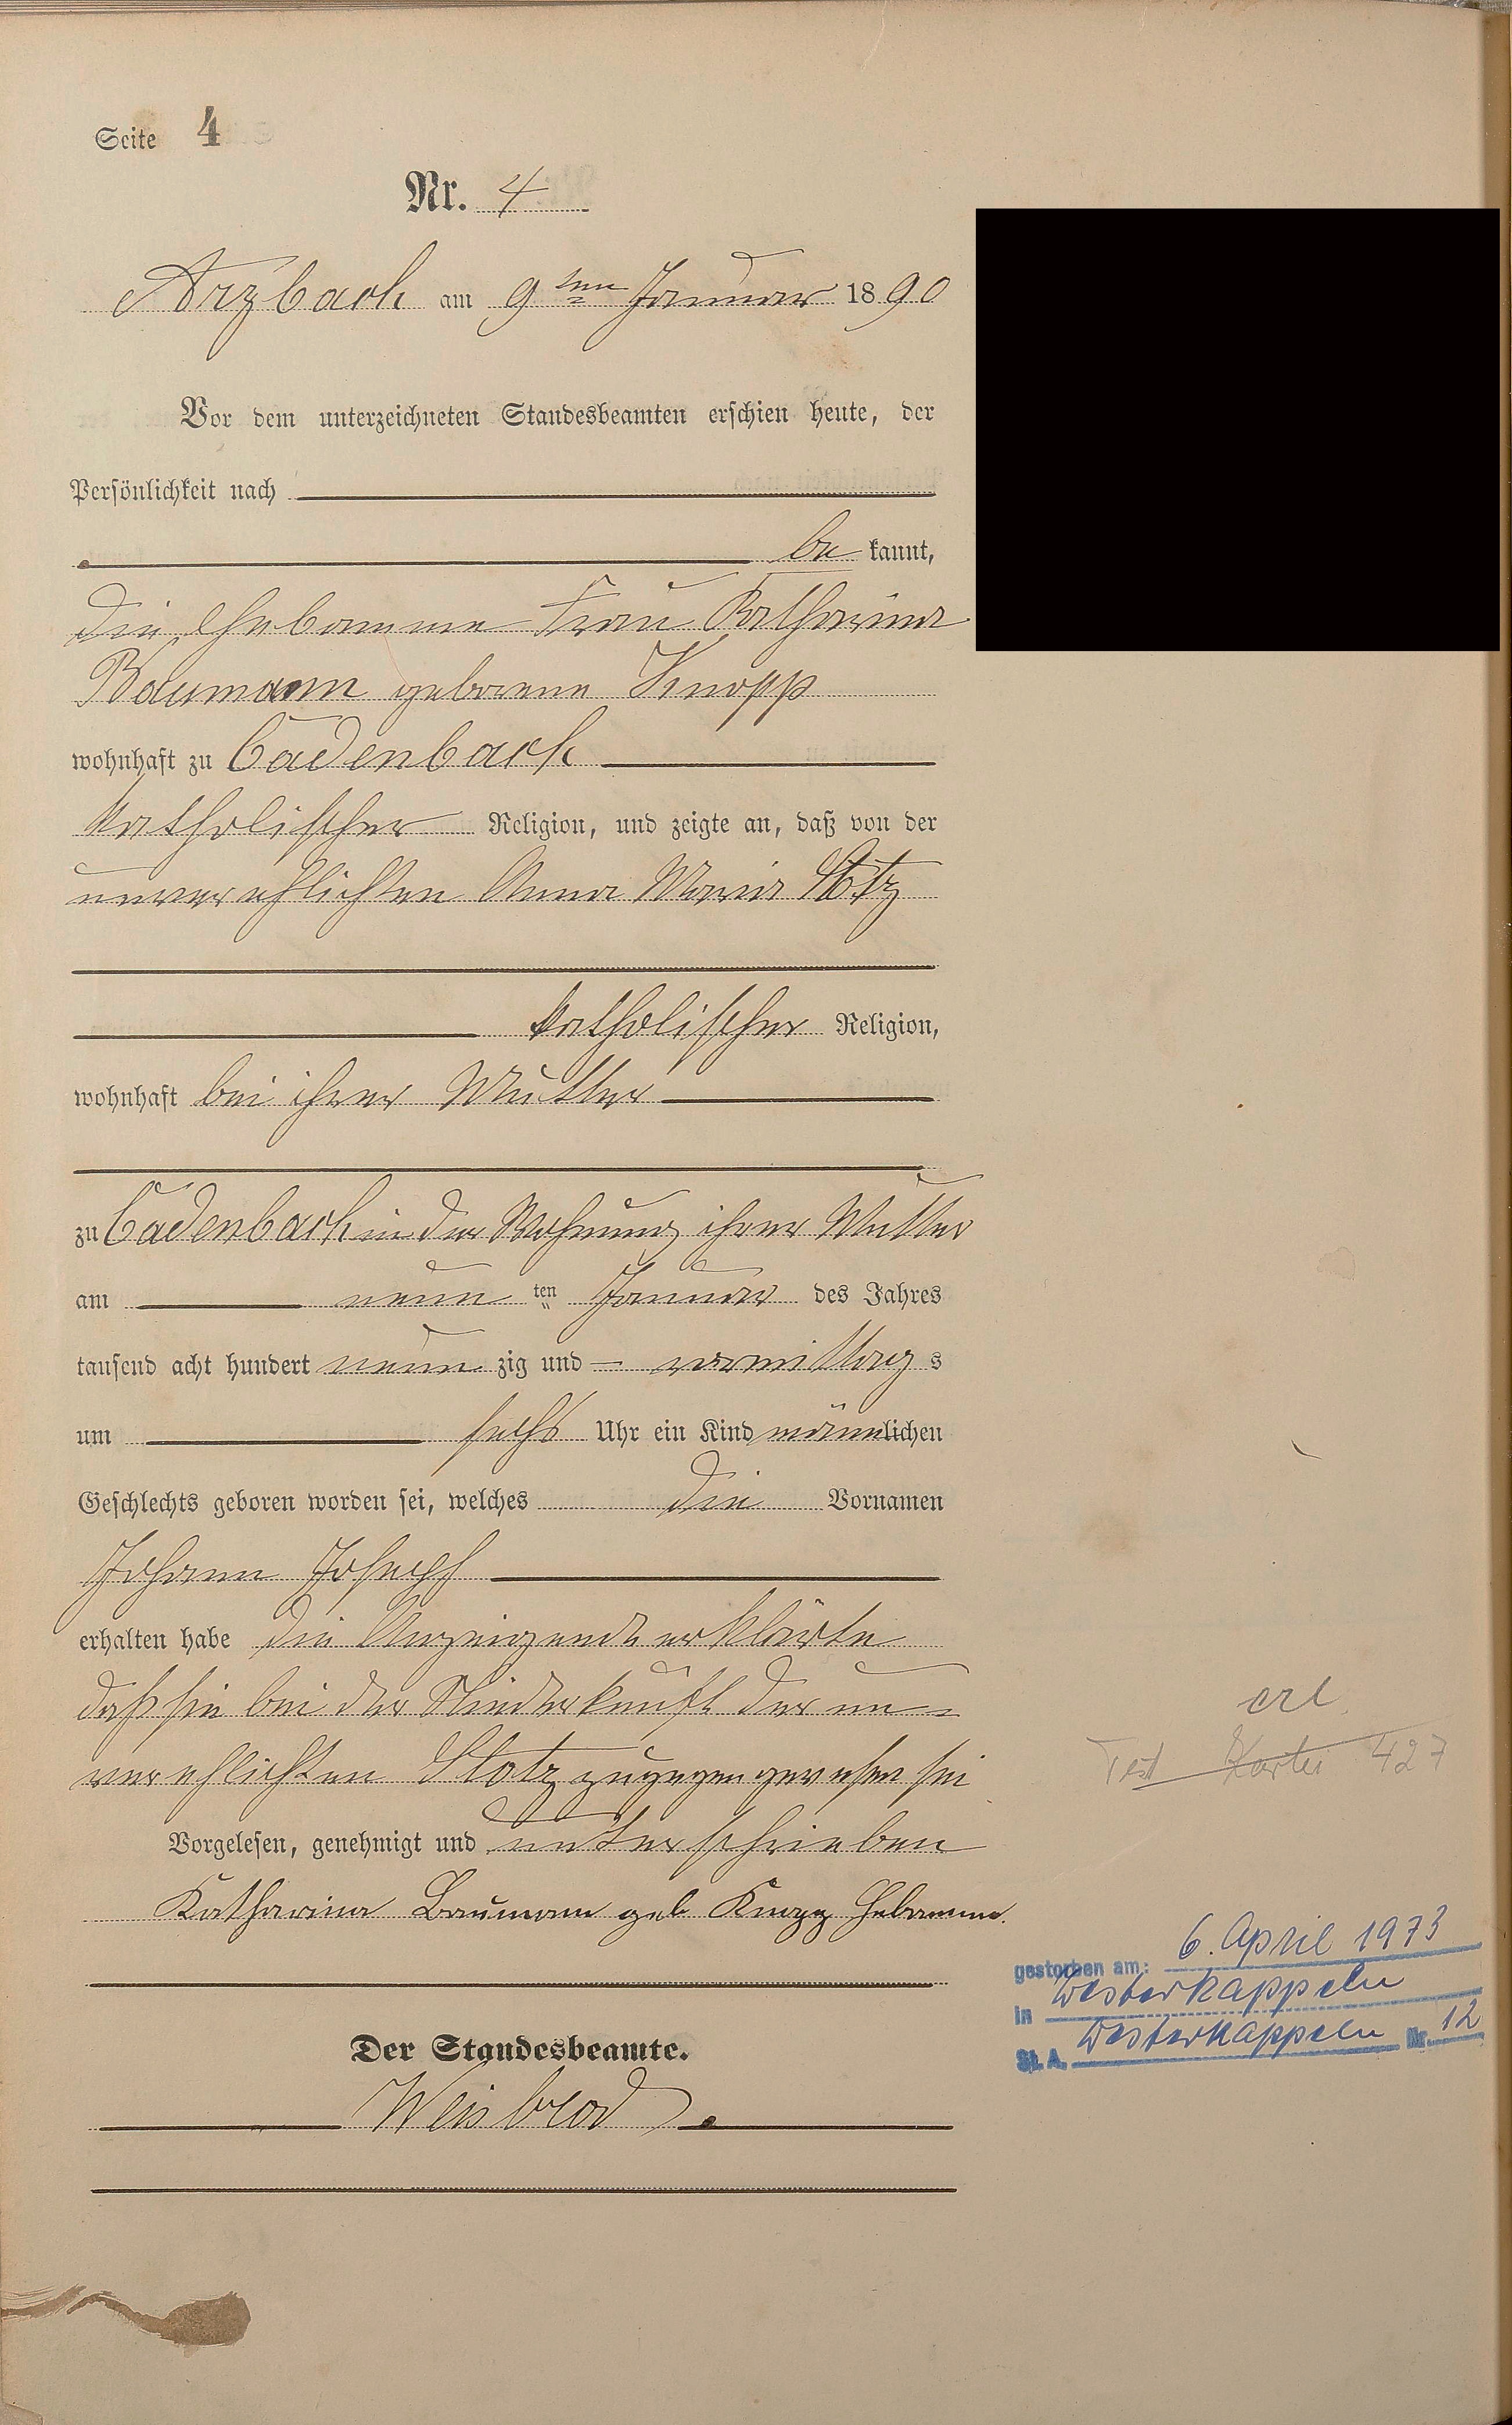 Seite 4
Nr. 4
Arzbach am 9ten Januar 1890
Vor dem unterzeichneten Standesbeamten erschien heute, der
Persönlichkeit nach
be kannt,
die Hebamme Frau Katharina
Baumann geborene Knopp
wohnhaft zu Cadenbach
katholischer Religion, und zeigte an, daß von der
unverehlichten Anna Maria Stotz
katholischer Religion,
wohnhaft bei ihrer Mutter
zu Cadenbach in der Wohnung ihrer Mutter
am neun ten Januar des Jahres
tausend acht hundert neun zig und – vormittags
um sechs Uhr ein Kind männlichen
Geschlechts geboren worden sei, welches die Vornamen
Johann Joseph
erhalten habe die Anzeigende erklärte
daß sie bei der Niederkunft der un=
verehlichten Stotz zugegen gewesen sei
Vorgelesen, genehmigt und unterschrieben
Katharina Baumann geb Knopp Hebamme.
Der Standesbeamte.
Weisbrod
erl.
Test Kartei 427
gestorben am: 6. April 1973
in Westerkappeln
St. A. Westerkappeln Nr. 12